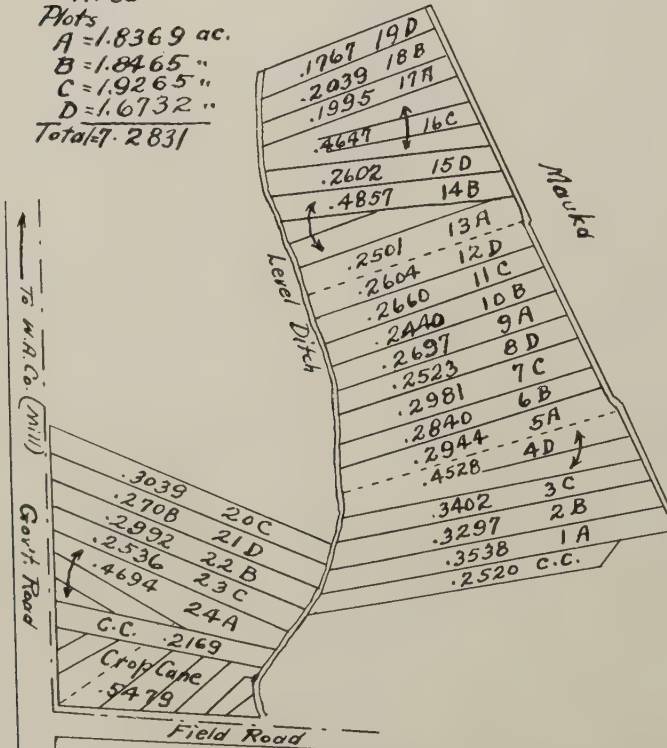 Plots
A = 1.8369 ac.
B = 1.8465 "
C = 1.9265 "
D = 1.6732 "
Total=7.2831
.1767 19D
.2039 18B
.1995 17A
.4647 16C
.2602 15D
.4857 14B
13A
.2501 12D
.2604 11C
.2660 10B
.2440 9A
.2697 8D
.2523 7C
.2981 6B
.2840 5A
.2944 4D
.4528
.3402 3C
.3297 2B
.3538 1A
.2520 C.C.
Mauka
Level Ditch
To W.A.Co. (Mill)
Gov't. Road
.3039 20C
.2708 21D
.2992 22B
.2536 23C
.4694 24A
C.C. .2169
Crop Cane
5479
Field Road